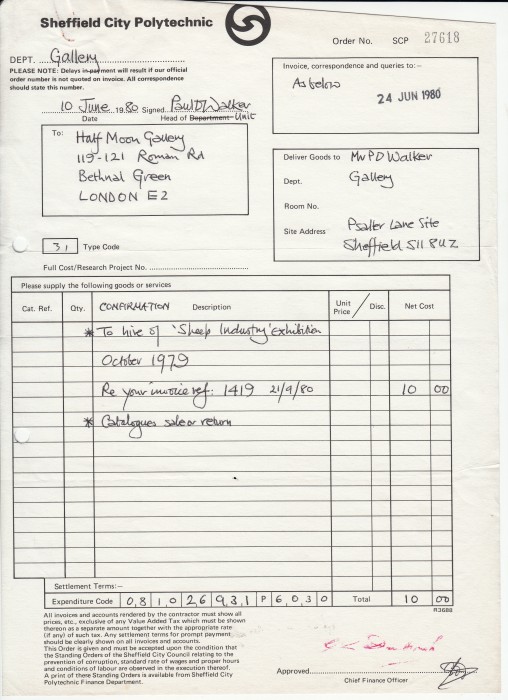 Sheffield City Polytechnic
Order No. SCP 27618
DEPT. Gallery
PLEASE NOTE: Delays in payment will result if our official
order number is not quoted on invoice. All correspondence
should state this number.
Invoice, correspondence and queries to:—
As below
24 JUN 1980
10 June 1980 Signed Paul D Walker
Date Head of Department Unit
To: Half Moon Gallery
119-121 Roman Rd
Bethnal Green
LONDON E2
Deliver Goods to Mr P D Walker
Dept. Gallery
Room No.
Site Address Psalter Lane Site
Sheffield S11 8UZ
31 Type Code
Full Cost/Research Project No.
Please supply the following goods or services
Cat. Ref. Qty. CONFIRMATION Description Unit Price / Disc. Net Cost
* To hire of 'Sheep Industry' exhibition
October 1979
Re your invoice ref: 1419 21/9/80 10 00
* Catalogues sale or return
Settlement Terms:—
Expenditure Code 0 8 1 0 2 6 9 3 1 P 6 0 3 0 Total 10 00
R3688
All invoices and accounts rendered by the contractor must show all
prices, etc., exclusive of any Value Added Tax which must be shown
thereon as a separate amount together with the appropriate rate
(if any) of such tax. Any settlement terms for prompt payment
should be clearly shown on all invoices and accounts.
This Order is given and must be accepted upon the condition that
the Standing Orders of the Sheffield City Council relating to the
prevention of corruption, standard rate of wages and proper hours
and conditions of labour are observed in the execution thereof.
A print of these Standing Orders is available from Sheffield City
Polytechnic Finance Department.
Approved
Chief Finance Officer